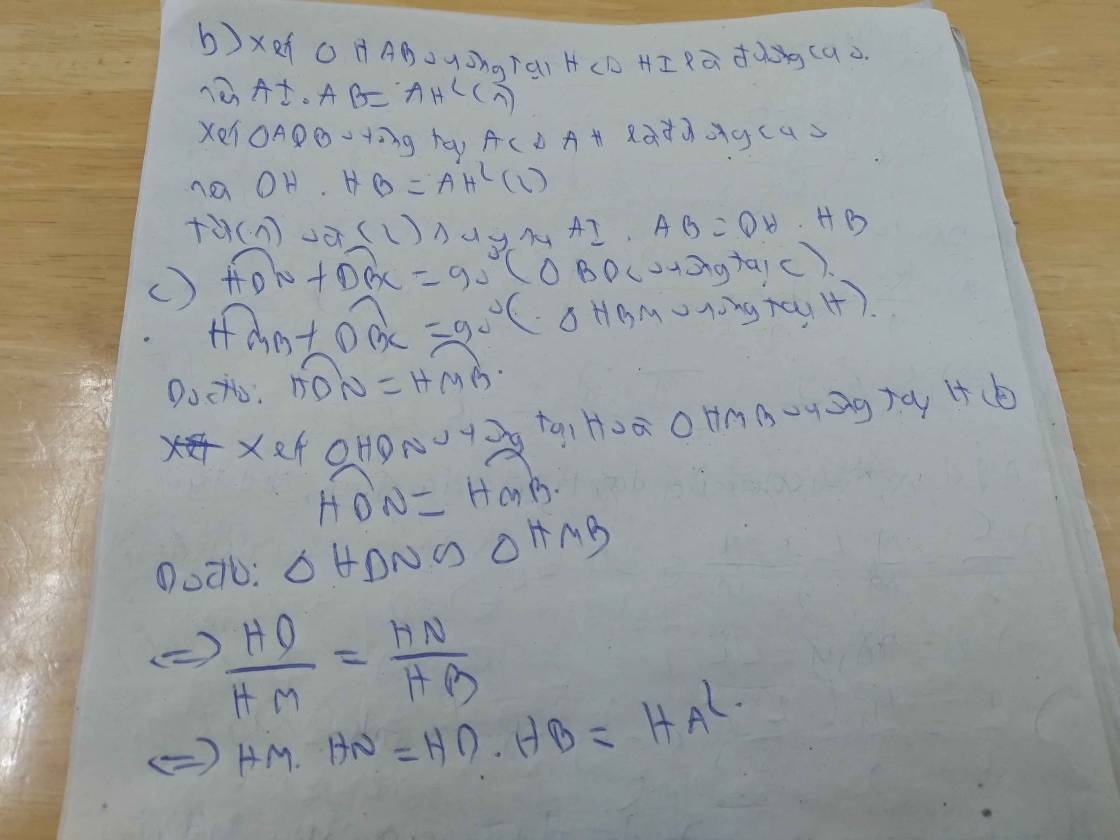 b) Xét Δ HAB vuông tại H có HI là đường cao.
nên AI . AB = AH² (1)
Xét Δ ADB vuông tại A có AH là đường cao
nên DH . HB = AH² (2)
từ (1) và (2) suy ra AI . AB = DH . HB
c) HDN + DBC = 90° (Δ BDC vuông tại C).
HMB + DBC = 90° (Δ HBM vuông tại H).
Do đó: HDN = HMB.
Xét Δ HDN vuông tại H và Δ HMB vuông tại H có
HDN = HMB.
Do đó: Δ HDN ∽ Δ HMB
<=> HD/HM = HN/HB
<=> HM . HN = HD . HB = HA².